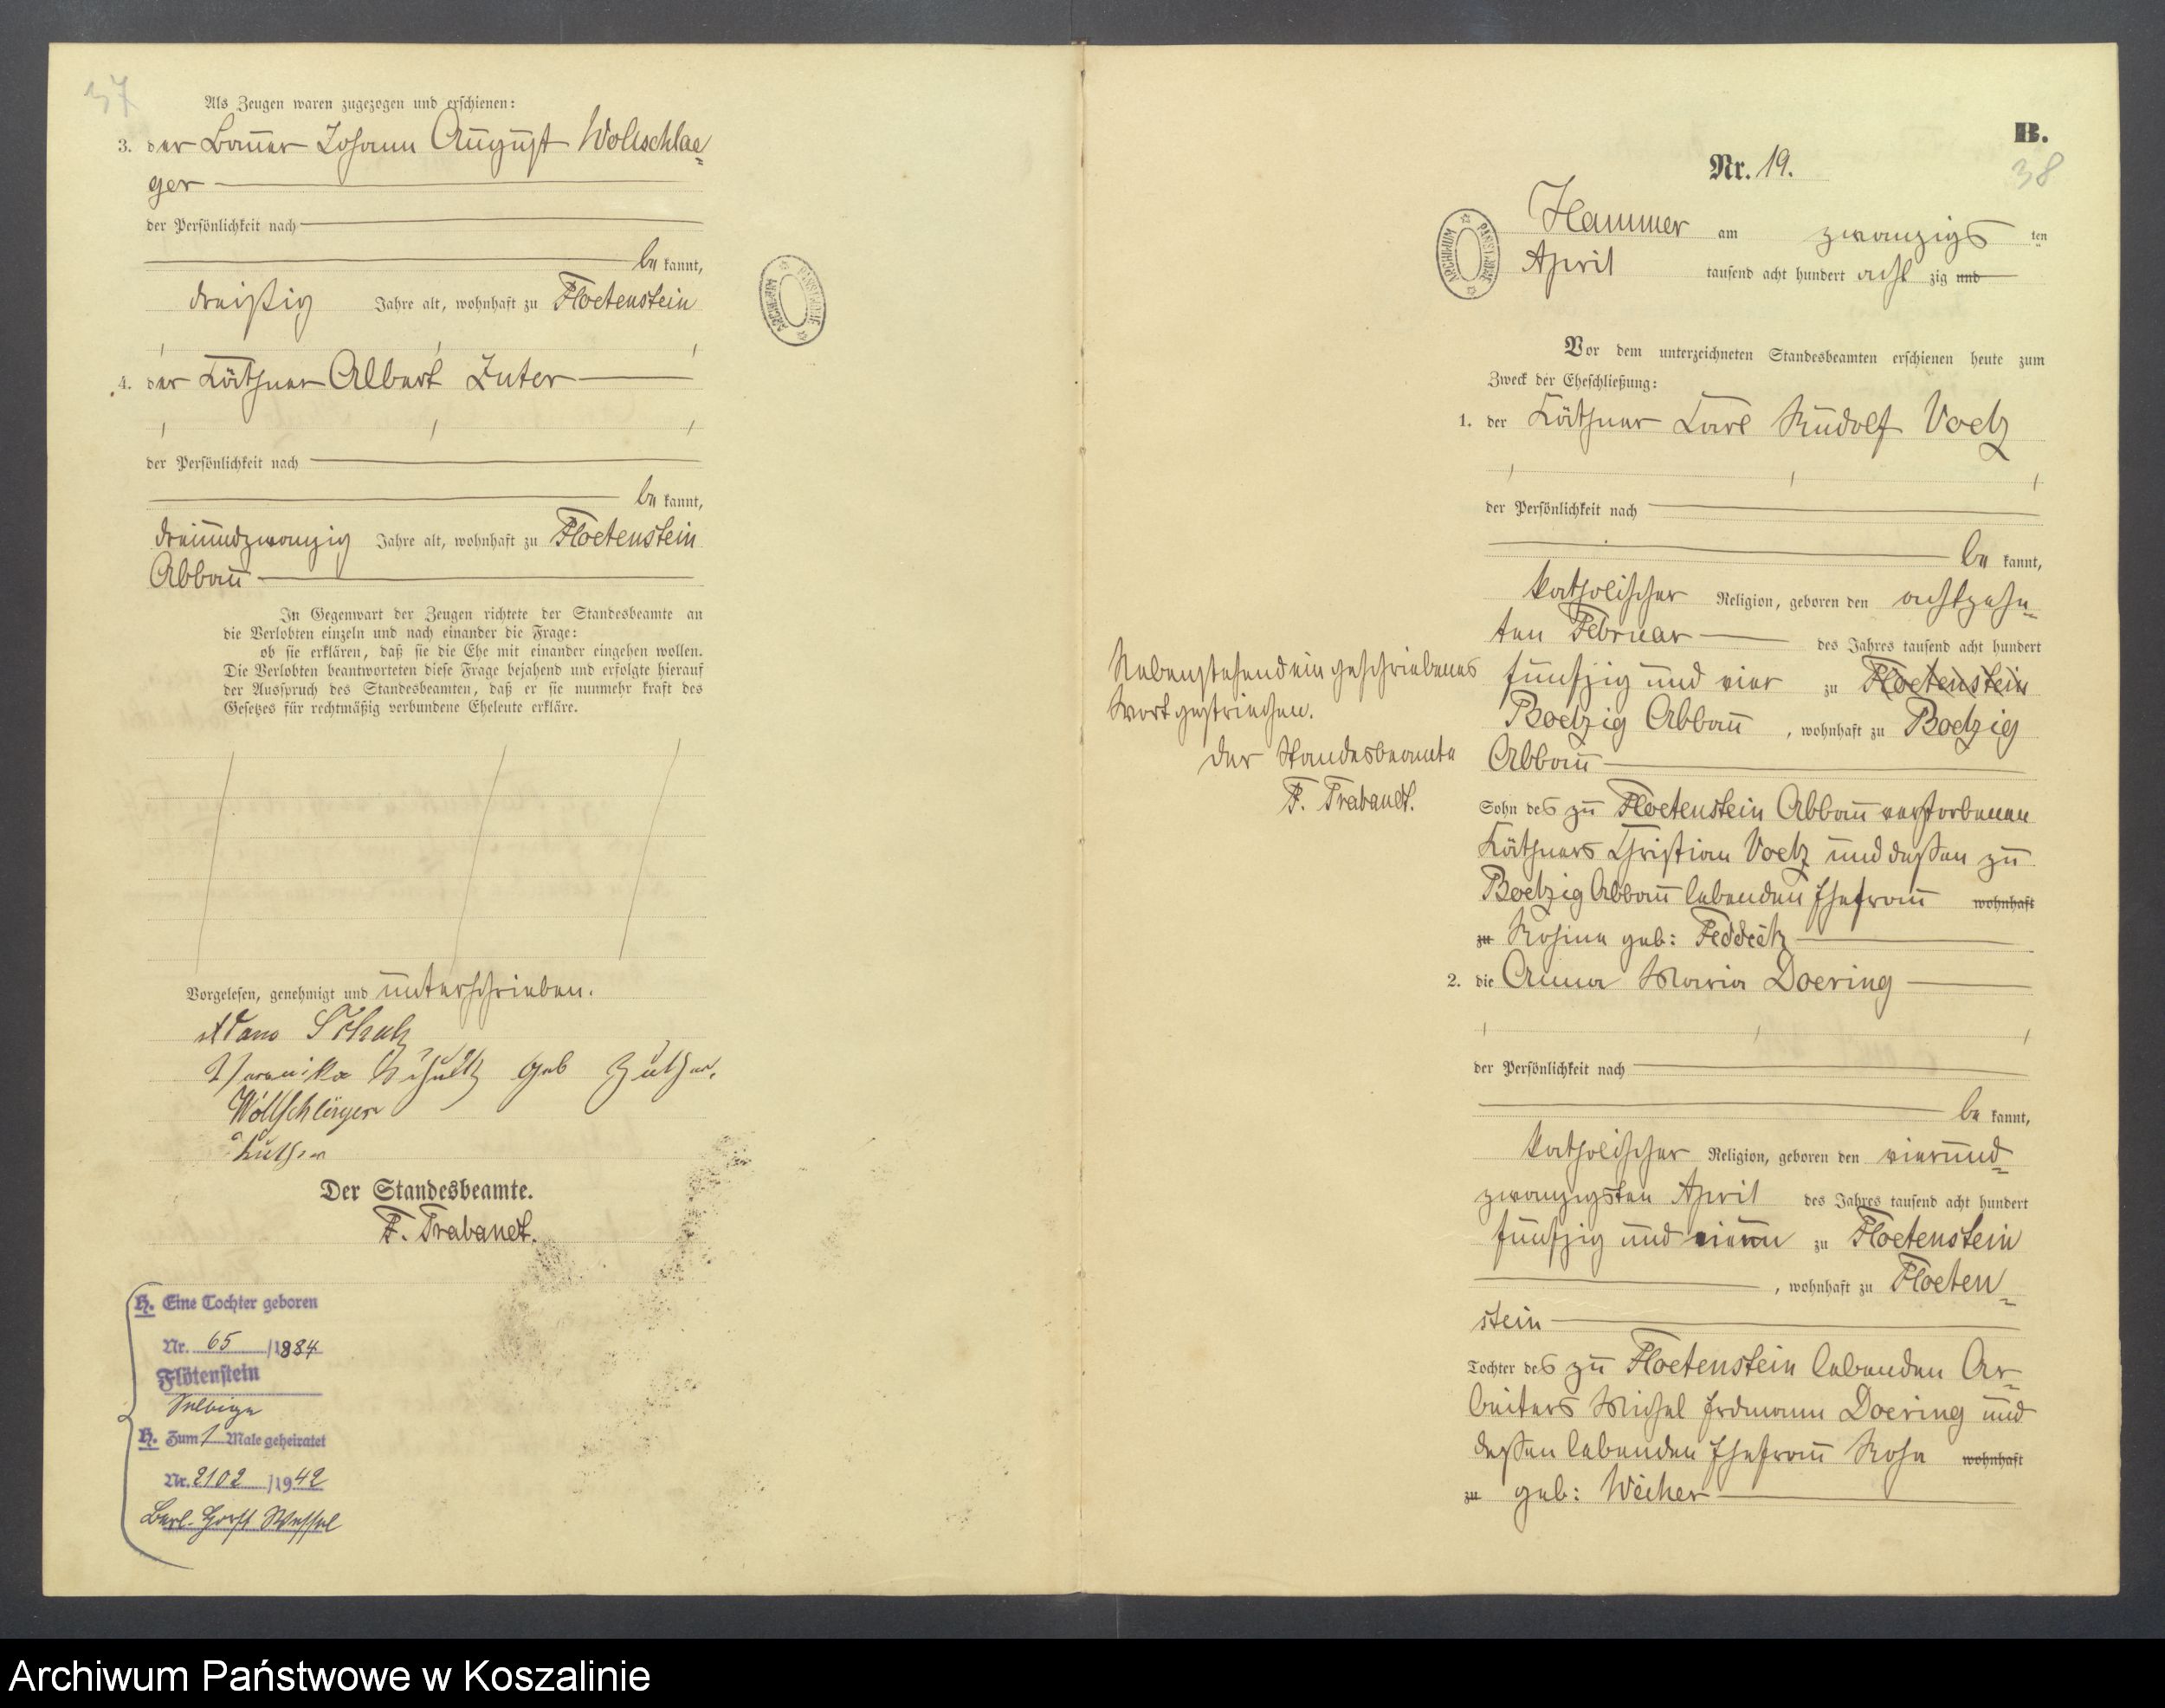 37
Als Zeugen waren zugezogen und erschienen:
3. der Bauer Johann August Wollschlae=
ger
der Persönlichkeit nach
be kannt,
dreißig Jahre alt, wohnhaft zu Floetenstein
4. der Käthner Albert Zuter
der Persönlichkeit nach
be kannt,
dreiundzwanzig Jahre alt, wohnhaft zu Floetenstein
Abbau
In Gegenwart der Zeugen richtete der Standesbeamte an
die Verlobten einzeln und nach einander die Frage:
ob sie erklären, daß sie die Ehe mit einander eingehen wollen.
Die Verlobten beantworteten diese Frage bejahend und erfolgte hierauf
der Ausspruch des Standesbeamten, daß er sie nunmehr kraft des
Gesetzes für rechtmäßig verbundene Eheleute erkläre.
Vorgelesen, genehmigt und unterschrieben.
Adam Schulz
Veronika Schultz geb Zuther,
Wollschläger
Zuther
Der Standesbeamte.
F. Trabandt.
H. Eine Tochter geboren
Nr. 65 /1884
Flötenstein
Selbige
H. Zum 1 Male geheiratet
Nr. 2102 /1942
Berl. Horst Wessel
ARCHIWUM PAŃSTWOWE
B.
38
Nr. 19.
ARCHIWUM PAŃSTWOWE
Hammer am zwanzigs ten
April tausend acht hundert acht zig und
Vor dem unterzeichneten Standesbeamten erschienen heute zum
Zweck der Eheschließung:
1. der Käthner Carl Rudolf Voetz
der Persönlichkeit nach
be kannt,
katholischer Religion, geboren den achtzehn=
ten Februar des Jahres tausend acht hundert
fünfzig und vier zu Floetenstein
Boetzig Abbau, wohnhaft zu Boetzig
Abbau
Sohn des zu Floetenstein Abbau verstorbenen
Käthners Christian Voetz und dessen zu
Boetzig Abbau lebenden Ehefrau wohnhaft
zu Rosine geb: Feddeck
Nebenstehend eingeschriebenes
Wort gestrichen.
Der Standesbeamte
F. Trabandt.
2. die Anna Maria Doering
der Persönlichkeit nach
be kannt,
katholischer Religion, geboren den vierund=
zwanzigsten April des Jahres tausend acht hundert
fünfzig und zu Floetenstein
, wohnhaft zu Floeten=
stein
Tochter des zu Floetenstein lebenden Ar=
beiters Michel Erdmann Doering und
dessen lebenden Ehefrau Rosa wohnhaft
zu geb: Weiher
Archiwum Państwowe w Koszalinie